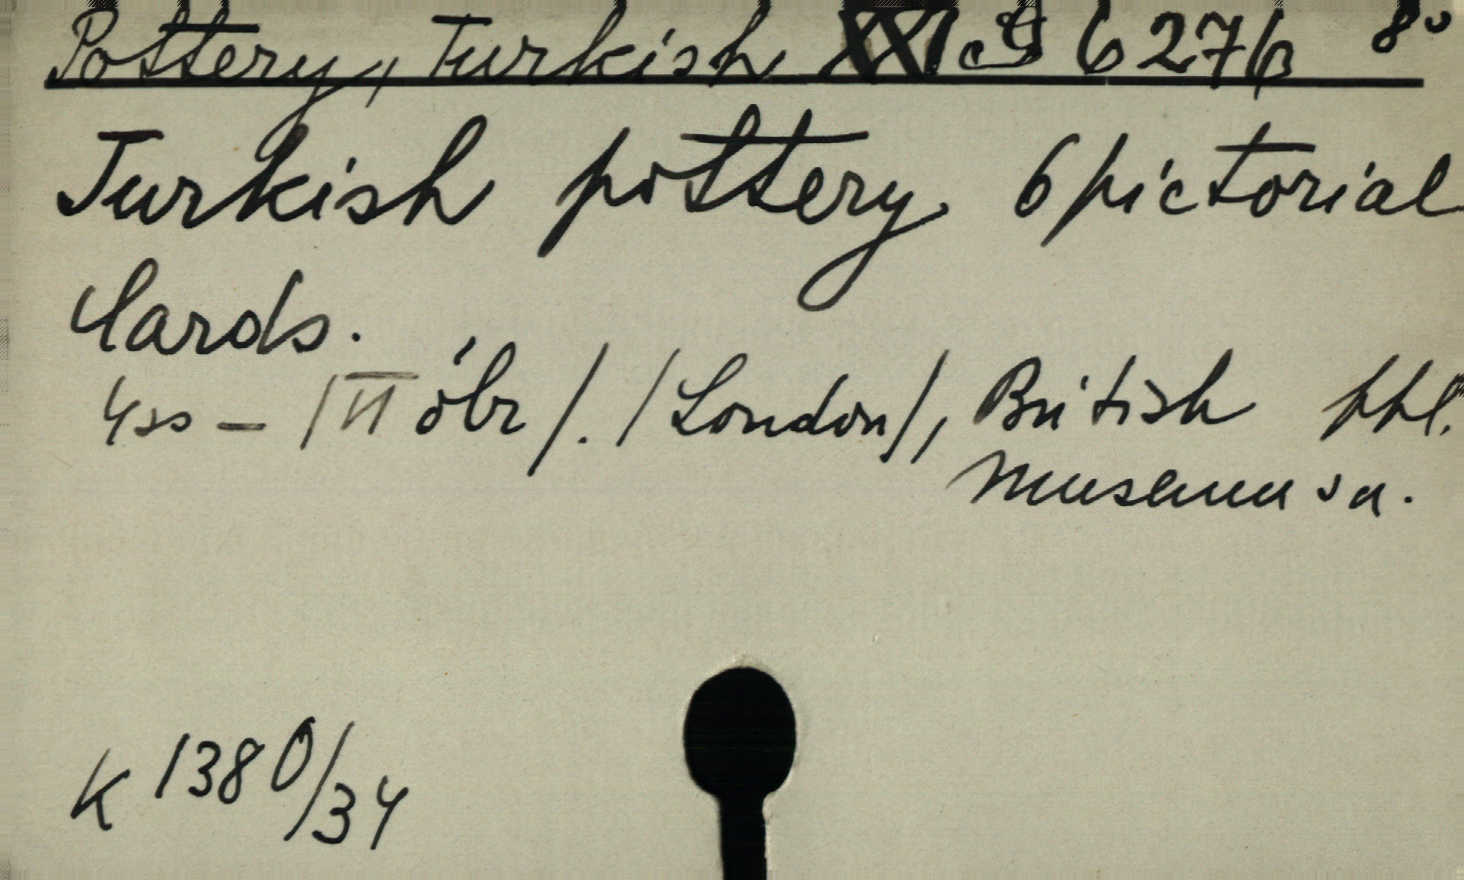 Pottery, Turkish XXI G 627/b 8°
Turkish pottery 6 pictorial
Cards.
4ss – /VI óbr/. /London/, British ppl.
Museum sa.
K 1380/34